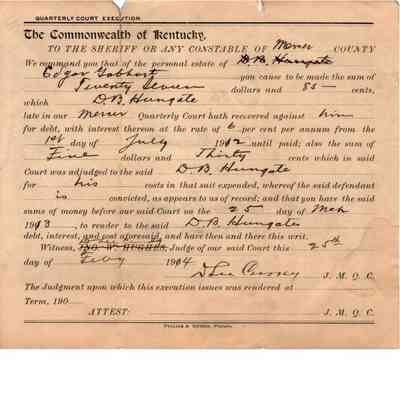 QUARTERLY COURT EXECUTION
The Commonwealth of Kentucky,
TO THE SHERIFF OR ANY CONSTABLE OF Mercer COUNTY
We command you that of the personal estate of D.B. Hungate
Edgar Gabhart you cause to be made the sum of
Twenty Seven dollars and 85 cents,
which D.B. Hungate
late in our Mercer Quarterly Court hath recovered against him
for debt, with interest thereon at the rate of 6 per cent per annum from the
1st day of July 1912 until paid; also the sum of
Five dollars and Thirty cents which in said
Court was adjudged to the said D.B. Hungate
for his costs in that suit expended, whereof the said defendant
is convicted, as appears to us of record; and that you have the said
sums of money before our said Court on the 25 day of Mch
191 , to render to the said D.B. Hungate
debt, interest, and cost aforesaid, and have then and there this writ.
Witness, Judge of our said Court this 25th
day of Feby 1914
J. M. Q. C.
The Judgment upon which this execution issues was rendered at
Term, 190
ATTEST: J. M. Q. C.